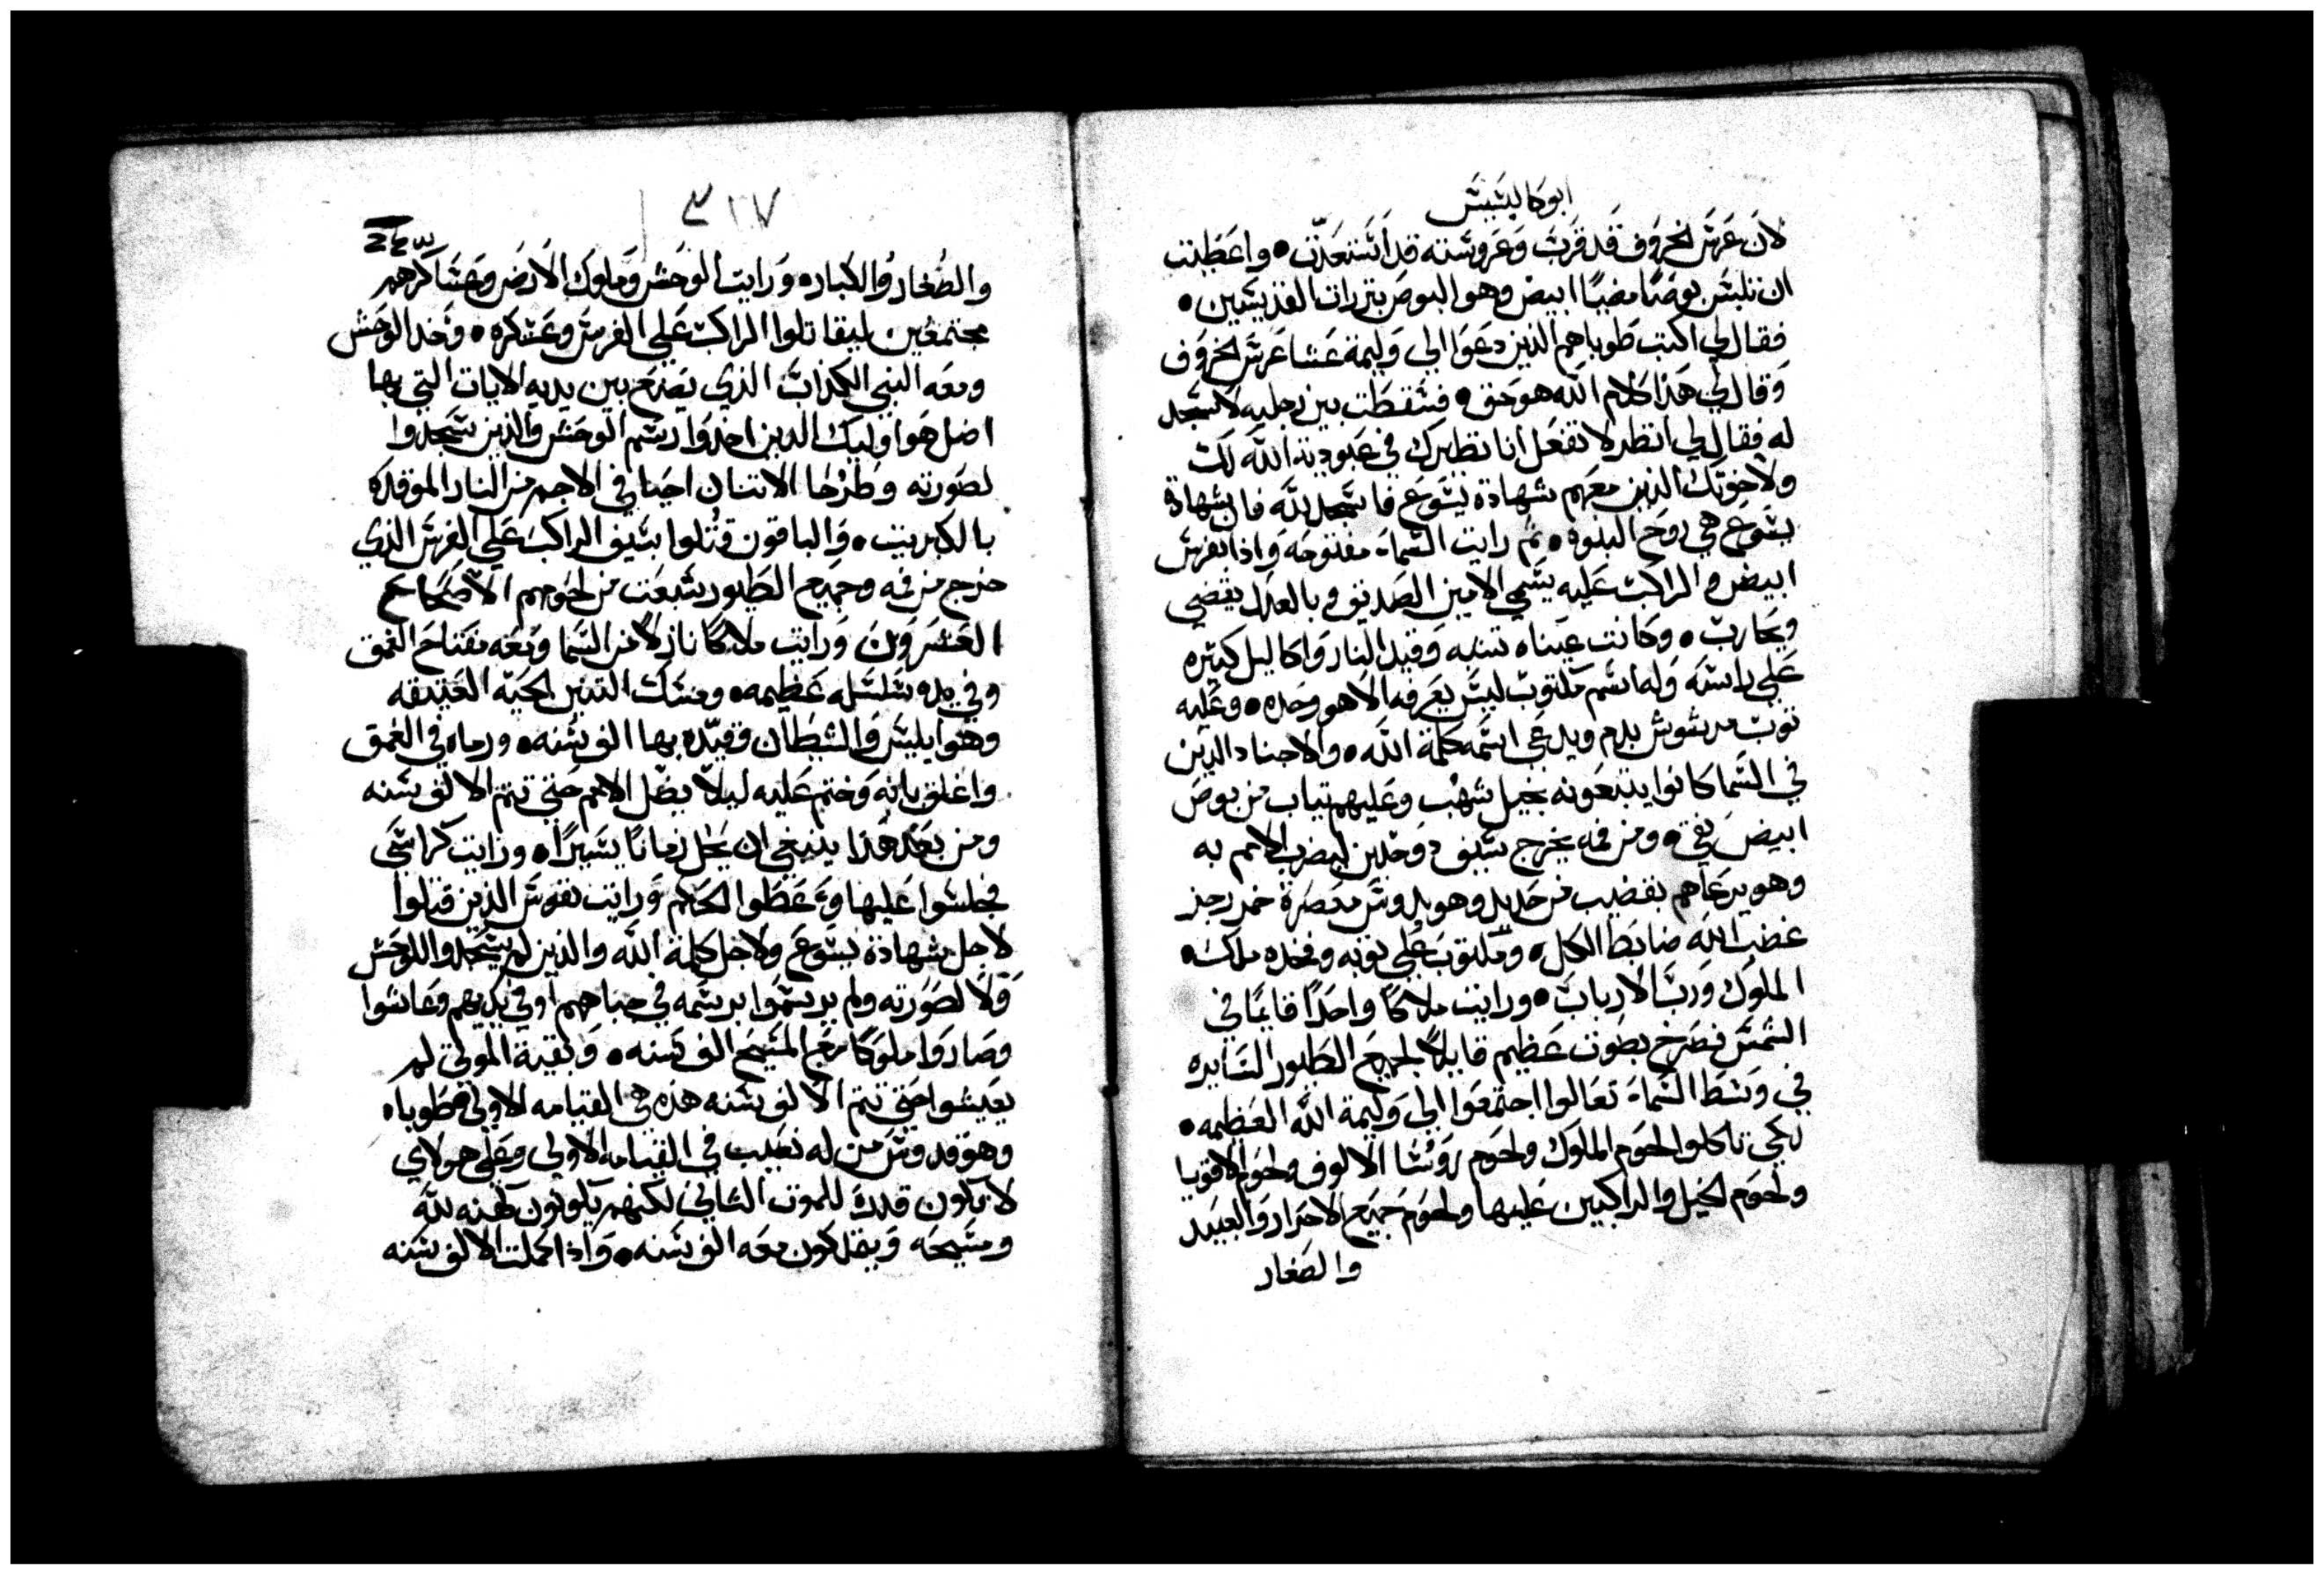 ابوكاليبسيس
لان عرس الخروف قد قرب وعروسته قد استعدت • واعطيت
ان تلبس بوصا مضيا ابيض وهو البوص بتررات القديسين •
فقال لي اكتب طوباهم الذين دعوا الي وليمة عشا عرس الخروف
وقال لي هذا كلام الله هو حق • فسقطت بين رجليه لاسجد
له فقال لي انظر لا تفعل انا نظيرك في عبودية الله لك
ولاخوتك الذين معهم شهادة يسوع فاسجد لله فان شهادة
يسوع هي روح النبوه • ثم رايت السماء مفتوحه واذا بفرس
ابيض والراكب عليه يسمي الامين الصديق وبالعدل يقضي
ويحارب • وكانت عيناه تشبه وقيد النار واكاليل كثيره
علي راسه وله اسم مكتوب ليس يعرفه الا هو وحده • وعليه
توب مرشوش بدم ويدعي اسمه كلمة الله • والاجناد الذين
في السما كانوا يتبعونه بخيل شهب وعليهم تياب من بوص
ابيض نقي • ومن فمه يخرج سيف دو حدين ليضرب الامم به
وهو يرعاهم بقضيب من حديد وهو يدوس معصرة خمر رجز
غضب الله ضابط الكل • ومكتوب علي توبه وفخده ملك •
الملوك ورب الارباب • ورايت ملاكا واحدا قايما في
الشمس فصرخ بصوت عظيم قايلا لجميع الطيور السايره
في وسط السماء تعالوا اجتمعوا الي وليمة الله العظيمه •
لكي تاكلوا لحوم الملوك ولحوم روسا الالوف ولحوم الاقويا
ولحوم الخيل والراكبين عليها ولحوم جميع الاحرار والعبيد
والصغار
٣١٧
والصغار والكباره ورايت الوحش وملوك الارض وعساكرهم
مجتمعين ليقاتلوا الراكب علي الفرس وعسكره • وخد الوحش
ومعه النبي الكداب الذي يصنع بين يديه الايات التي بها
اضل هواوليك الدين اخدوا رسم الوحش والدين سجدوا
لصورته وطرحا الاتنان احيا في الاجم من النار الموقده
بالكبريت • والباقون قتلوا بسيف الراكب علي الفرس الذي
خرج من فمه وجميع الطيور شبعت من لحومهم الاصحاح
العشرون ورايت ملاكا نازلا من السما ومعه مفتاح العمق
وفي يده سلسله عظيمه • ومسك التنين الحيه العتيقه
وهو ابليس والشيطان وقيده بها الف سنه • ورماه في العمق
واغلق بابه وختم عليه ليلا يضل الامم حتي تتم الالف سنه
ومن بعد هذا ينبغي ان يحل زمانا يسيرا • ورايت كراسي
فجلسوا عليها واعطوا الحكم ورايت نفوس الذين قتلوا
لاجل شهادة يسوع ولاجل كلمة الله والذين لم يسجدوا للوحش
ولا لصورته ولم يرسموا برسمه في جباههم او في يديهم وعاشوا
وصاروا ملوكا مع المسيح الف سنه • وبقية الموتي لم
يعيشوا حتي تتم الالف سنه هذه هي القيامه الاولي فطوباه
وهو قدوس من له نصيب في القيامه الاولي وعلي هولاي
لا يكون قدك للموت التاني لكنهم يكونون كهنه لله
ومسيحه ويملكون معه الف سنه • واذا كملت الالف سنه